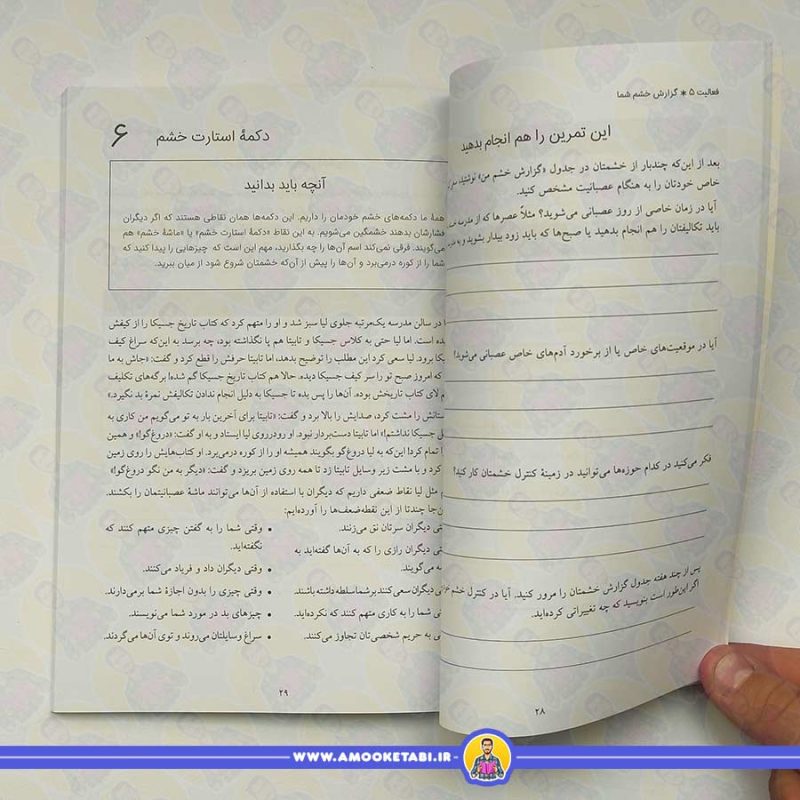 فعالیت ۵ * گزارش خشم شما
این تمرین را هم انجام بدهید
بعد از این‌که چندبار از خشمتان در جدول «گزارش خشم من» نوشتید،
خاص خودتان را به هنگام عصبانیت مشخص کنید.
آیا در زمان خاصی از روز عصبانی می‌شوید؟ مثلاً عصرها که از مدرسه
باید تکالیفتان را هم انجام بدهید یا صبح‌ها که باید زود بیدار بشوید و به
آیا در موقعیت‌های خاص یا از برخورد آدم‌های خاص عصبانی می‌شوید؟
فکر می‌کنید در کدام حوزه‌ها می‌توانید در زمینهٔ کنترل خشمتان کار کنید؟
پس از چند هفته جدول گزارش خشمتان را مرور کنید. آیا در کنترل خشم
اگر این‌طور است بنویسید که چه تغییراتی کرده‌اید.
۲۸
۶ دکمهٔ استارت خشم
آنچه باید بدانید
همهٔ ما دکمه‌های خشم خودمان را داریم. این دکمه‌ها همان نقاطی هستند که اگر دیگران
فشارشان بدهند خشمگین می‌شویم. به این نقاط «دکمهٔ استارت خشم» یا «ماشهٔ خشم» هم
می‌گویند. فرقی نمی‌کند اسم آن‌ها را چه بگذارید، مهم این است که چیزهایی را پیدا کنید که
شما را از کوره درمی‌برد و آن‌ها را پیش از آن‌که خشمتان شروع شود از میان ببرید.
در سالن مدرسه یک‌مرتبه جلوی لیا سبز شد و او را متهم کرد که کتاب تاریخ جسیکا را از کیفش
ده است. اما لیا حتی به کلاس جسیکا و تابیتا هم پا نگذاشته بود، چه برسد به این‌که سراغ کیف
جسیکا برود. لیا سعی کرد این مطلب را توضیح بدهد، اما تابیتا حرفش را قطع کرد و گفت: «جاش به ما
که امروز صبح تو را سر کیف جسیکا دیده. حالا هم کتاب تاریخ جسیکا گم شده! برگه‌های تکلیف
لای کتاب تاریخش بوده. آن‌ها را پس بده تا جسیکا به دلیل انجام ندادن تکالیفش نمرهٔ بد نگیرد.»
ستانش را مشت کرد، صدایش را بالا برد و گفت: «تابیتا برای آخرین بار به تو می‌گویم من کاری به
جسیکا نداشتم!» اما تابیتا دست‌بردار نبود. او رودرروی لیا ایستاد و به او گفت: «دروغ‌گو!» و همین
تمام کرد! این‌که به لیا دروغ‌گو بگویند همیشه او را از کوره درمی‌برد. او کتاب‌هایش را روی زمین
کرد و با مشت زیر وسایل تابیتا زد تا همه روی زمین بریزد و گفت: «دیگر به من نگو دروغ‌گو!»
مثل لیا نقاط ضعفی داریم که دیگران با استفاده از آن‌ها می‌توانند ماشهٔ عصبانیتمان را بکشند.
جا چندتا از این نقطه‌ضعف‌ها را آورده‌ایم:
دیگران سرتان نق می‌زنند.
دیگران رازی را که به آن‌ها گفته‌اید به
می‌گویند.
دیگران سعی کنند بر شما سلطه داشته باشند.
شما را به کاری متهم کنند که نکرده‌اید.
به حریم شخصی‌تان تجاوز می‌کنند.
• وقتی شما را به گفتن چیزی متهم کنند که
نگفته‌اید.
• وقتی دیگران داد و فریاد می‌کنند.
• وقتی چیزی را بدون اجازهٔ شما برمی‌دارند.
• چیزهای بد در مورد شما می‌نویسند.
• سراغ وسایلتان می‌روند و توی آن‌ها می‌گردند.
۲۹
WWW.AMOOKETABI.IR